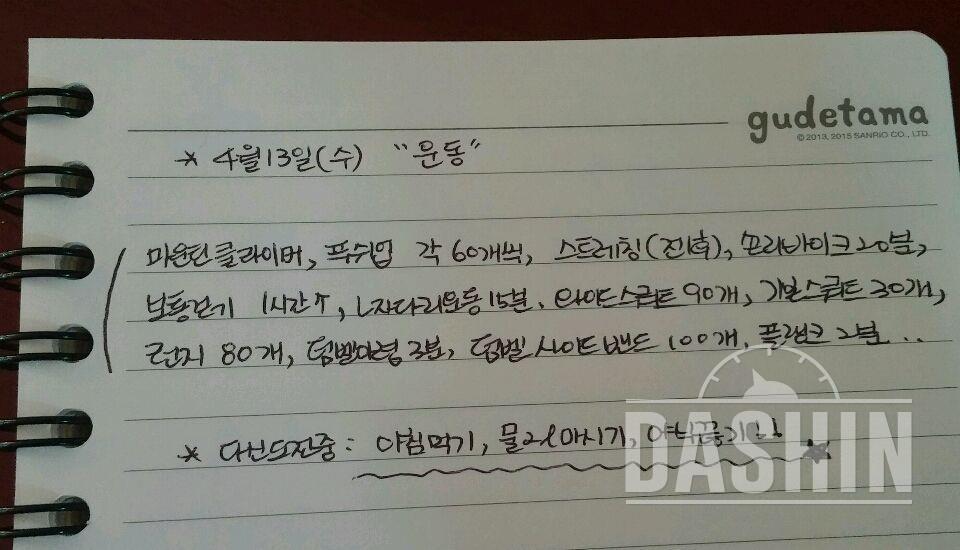 gudetama
© 2013, 2015 SANRIO CO., LTD.
* 4월 13일(수) "운동"
마운틴클라이머, 푸쉬업 각 60개씩, 스트레칭(전,후), 프리바이크 20분,
보통걷기 1시간↑, L자다리운동 15분, 와이드스쿼트 90개, 기본스쿼트 30개,
런지 80개, 덤벨 3분, 덤벨 사이드밴드 100개, 플랭크 2분...
* 다신도전중 : 아침먹기, 물 2l 마시기, 야식끊기!!
DASHIN